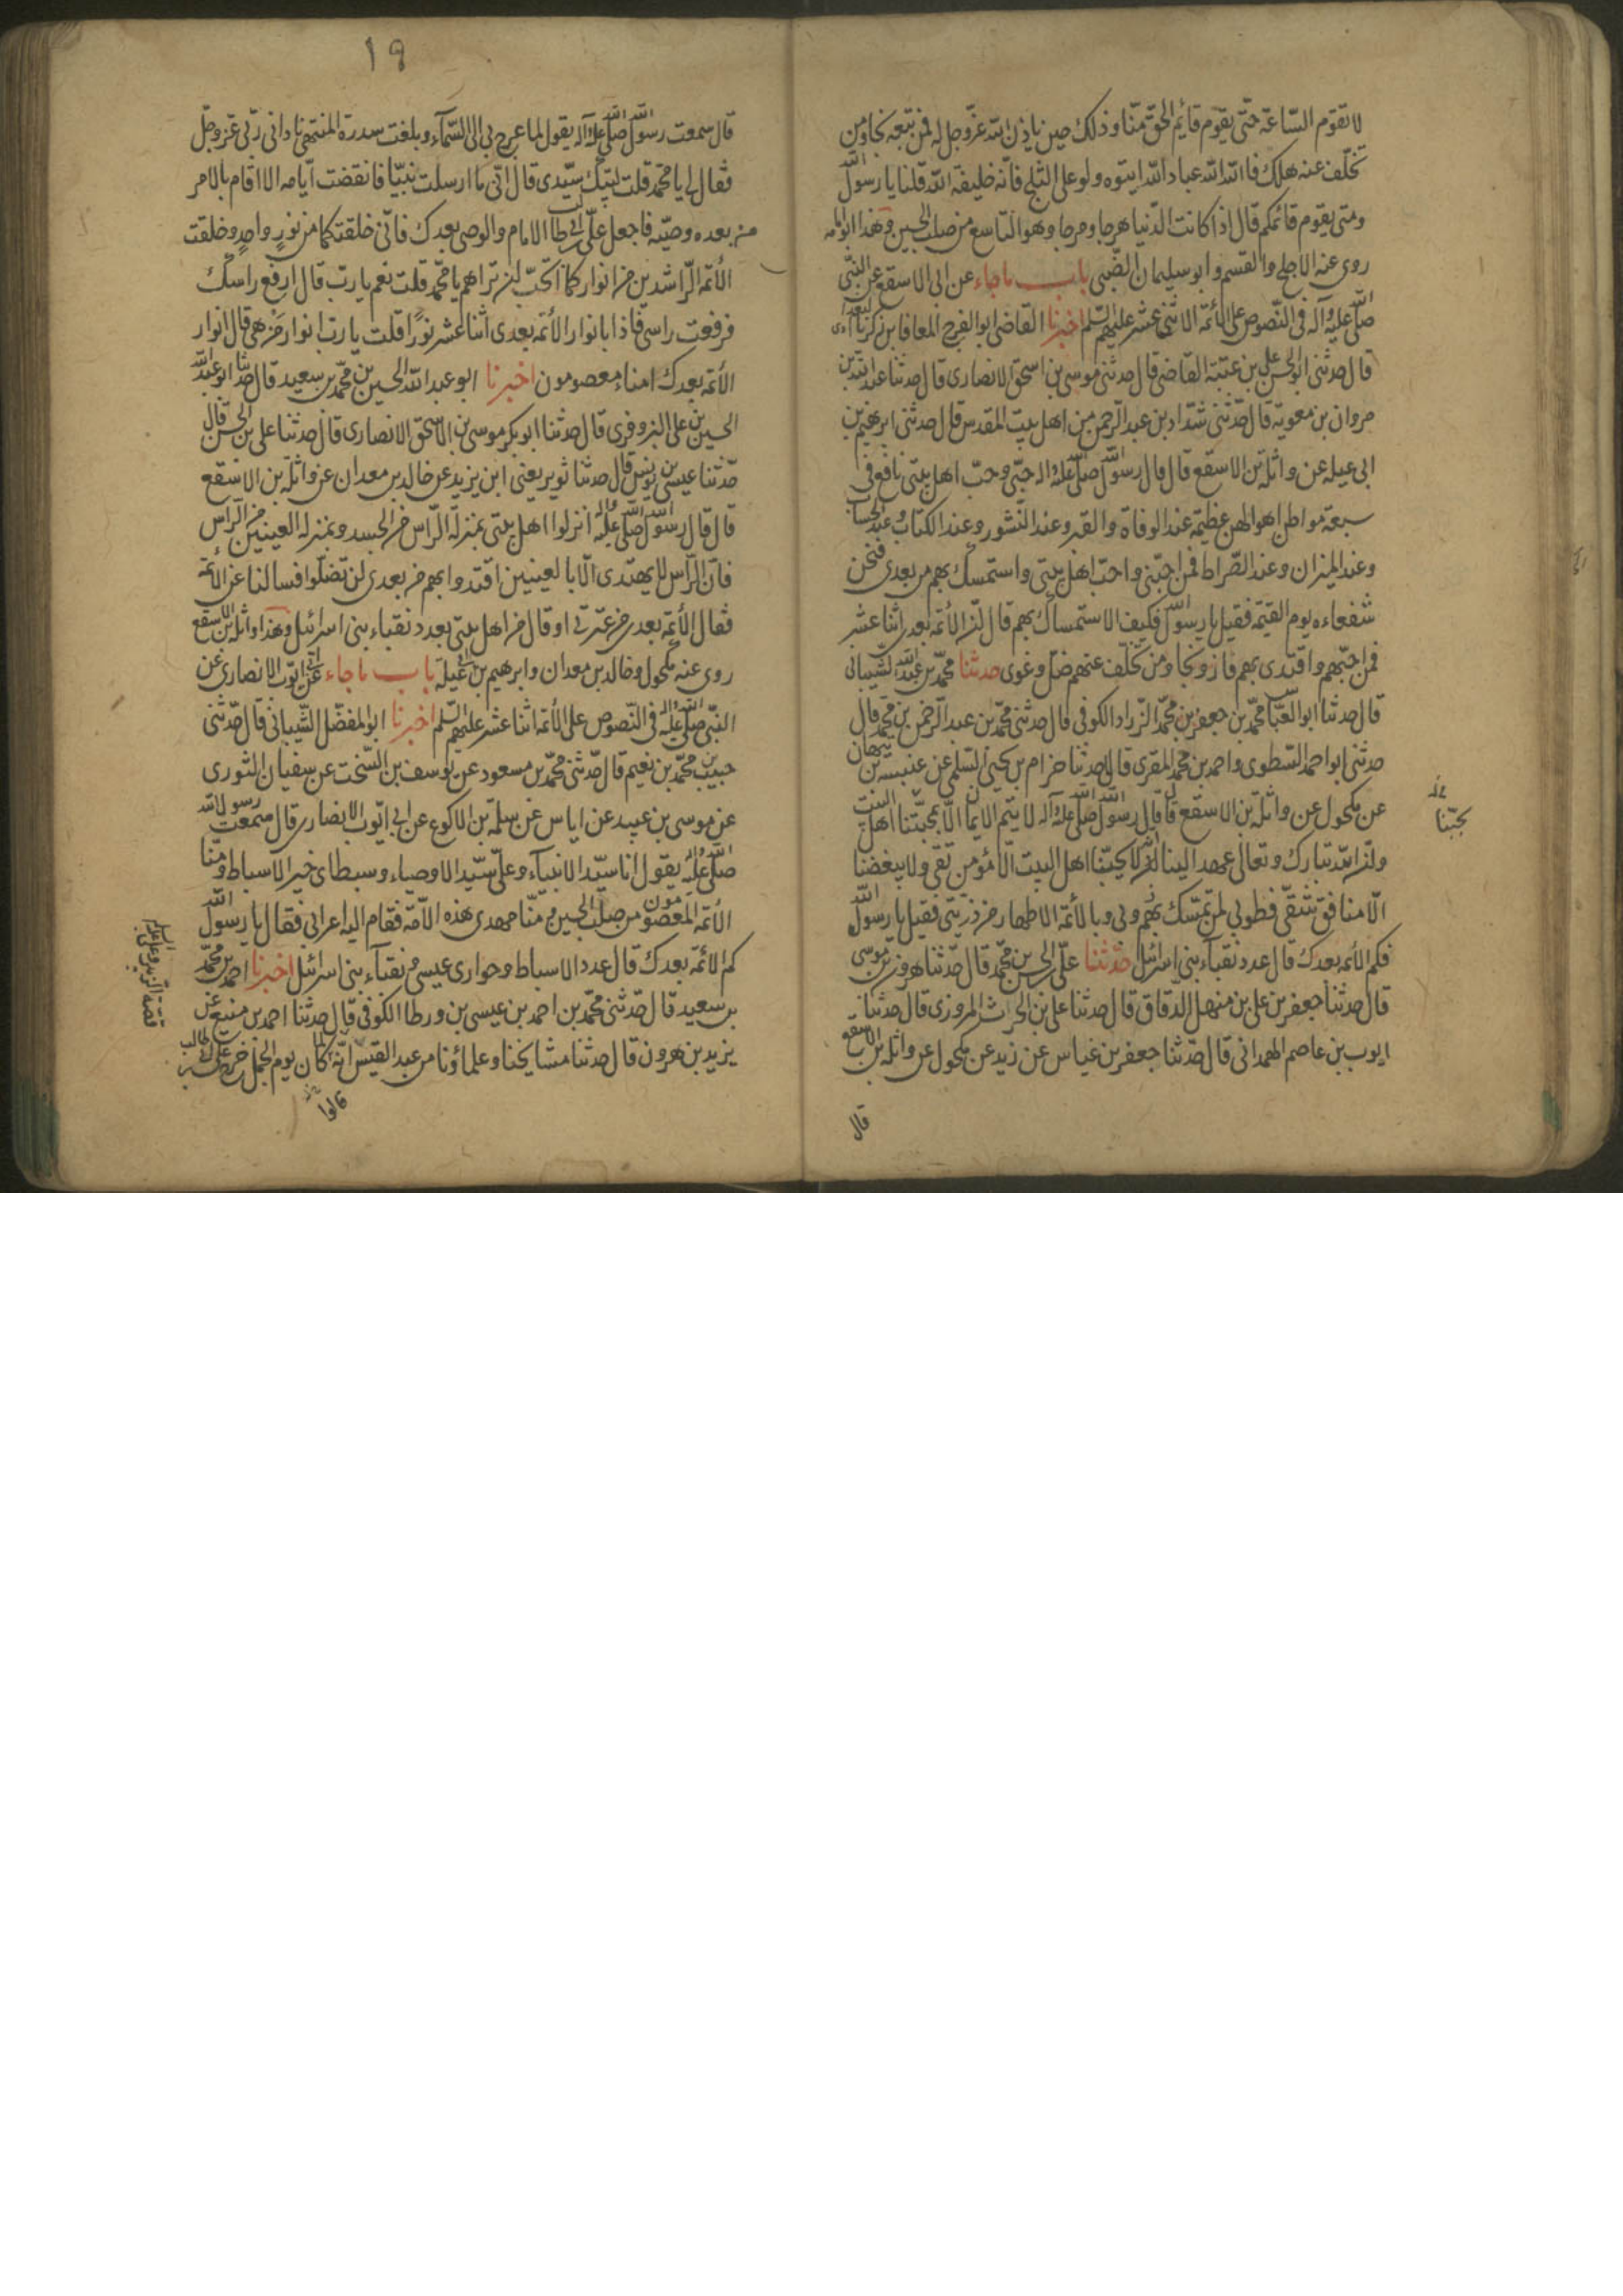 لا تقوم الساعة حتى يقوم قايم الحق منا وذلك حين ياذن الله عز وجل له فمن تبعه نجا ومن
تخلف عنه هلك فالله الله عباد الله ايتوه ولو على الثلج فانه خليفة الله قلنا يا رسول الله
ومتى يقوم قائمكم قال اذا كانت الدنيا هرجا ومرجا وهو التاسع من صلب الحسين وهذا ابو امامه
روى عنه الاجلح والقسم وابو سليمان الضبى باب ما جاء عن ابى الاسقع عن النبى
صلى الله عليه وآله فى النصوص على الأئمة الاثنى عشر عليهم السلم اخبرنا القاضى ابو الفرج المعافا بن زكريا البغدادى
قال حدثنى ابو الحسن على بن عتبة القاضى قال حدثنى موسى بن اسحق الانصارى قال حدثنا عبد الله بن
مروان بن معوية قال حدثنى شداد بن عبد الرحمن من اهل بيت المقدس قال حدثنى ابرهيم بن
ابى عيله عن واثلة بن الاسقع قال قال رسول الله صلى الله عليه واله حبى وحب اهل بيتى نافع فى
سبعة مواطن اهوالهن عظيمة عند الوفاة والقبر وعند النشور وعند الكتاب وعند الحساب
وعند الميزان وعند الصراط فمن احبنى واحب اهل بيتى واستمسك بهم من بعدى فنحن
شفعاءه يوم القيمة فقيل يا رسول الله فكيف الاستمساك بهم قال ان الأئمة بعدى اثنا عشر
فمن احبهم واقتدى بهم فاز ونجا ومن تخلف عنهم ضل وغوى حدثنا محمد بن عبد الله الشيبانى
قال حدثنا ابو العباس محمد بن جعفر بن محمد الزراد الكوفى قال حدثنى محمد بن عبد الرحمن بن محمد قال
حدثنى ابو احمد السطوى واحمد بن محمد المقرى قالا حدثنا خزام بن يحيى السلمى عن عنبسه بن تيهان
عن مكحول عن واثلة بن الاسقع قال قال رسول الله صلى الله عليه وآله لا يتم الايمان الا بمحبتنا اهل البيت
وان الله تبارك وتعالى عهد الينا انه لا يحبنا اهل البيت الا مؤمن تقى ولا يبغضنا
الا منافق شقى فطوبى لمن تمسك بهم وبى وبالأئمة الاطهار من ذريتى فقيل يا رسول الله
فكم الأئمه بعدك قال عدد نقباء بنى اسرائيل حدثنا على بن الحسن بن محمد قال حدثنا هرون بن موسى
قال حدثنا جعفر بن على بن منهل الدقاق قال حدثنا على بن الحرث المروزى قال حدثنا
ايوب بن عاصم الهمدانى قال حدثنا جعفر بن غياس عن زيد عن مكحول عن واثلة بن الاسقع
قال
يحبنا
١٩
قال سمعت رسول الله صلى الله عليه وآله يقول لما عرج بى الى السماء وبلغت سدرة المنتهى نادانى ربى عز وجل
فقال لى يا محمد قلت لبيك سيدى قال انى ما ارسلت نبيا فانقضت أيامه الا اقام بالامر
من بعده وصيه فاجعل على بن ابى طالب الامام والوصى بعدك فانى خلقتكما من نور واحد وخلقت
الأئمة الراشدين من انواركما اتحب ان تراهم يا محمد قلت نعم يا رب قال ارفع راسك
فرفعت راسى فاذا بانوار الأئمة بعدى اثنا عشر نورا قلت يا رب انوار من هى قال انوار
الأئمة بعدك امناء معصومون اخبرنا ابو عبد الله الحسين بن محمد بن سعيد قال حدثنا ابو عبد الله
الحسين بن على البزوفرى قال حدثنا ابو بكر موسى بن الاسحق الانصارى قال حدثنا على بن الحسن قال
حدثنا عيسى بن يونس قال حدثنا ثوير يعنى ابن يزيد عن خالد بن معدان عن واثلة بن الاسقع
قال قال رسول الله صلى الله عليه واله انزلوا اهل بيتى بمنزلة الراس من الجسد وبمنزلة العينين من الراس
فان الراس لا يهتدى الا بالعينين اقتدوا بهم من بعدى لن تضلوا فسالنا عن الأئمة
فقال الأئمة بعدى من عترتى او قال من اهل بيتى بعدد نقباء بنى اسرائيل وهذا واثلة بن الاسقع
روى عنه مكحول وخالد بن معدان وابرهيم بن ابى عيله باب ما جاء عن ابى ايوب الانصارى عن
النبى صلى الله عليه واله فى النصوص على الأئمة اثنا عشر عليهم السلم اخبرنا ابو المفضل الشيبانى قال حدثنى
حبيب بن محمد بن نعيم قال حدثنى محمد بن مسعود عن يوسف بن السخت عن سفيان الثورى
عن موسى بن عبيد عن اياس عن سلمة بن الاكوع عن ابى ايوب الانصارى قال سمعت رسول الله
صلى الله عليه واله يقول انا سيد الانبياء وعلى سيد الاوصياء وسبطاى خير الاسباط ومنا
الأئمة المعصومون من صلب الحسين ومنا مهدى هذه الامة فقام اليه اعرابى فقال يا رسول الله
كم الائمة بعدك قال عدد الاسباط وحوارى عيسى ونقباء بنى اسرائيل اخبرنا احمد بن محمد
بن سعيد قال حدثنى محمد بن احمد بن عيسى بن ورطا الكوفى قال حدثنا احمد بن منيع عن
يزيد بن هرون قال حدثنا مشايخنا وعلماؤنا من عبد القيس انه لما كان يوم الجمل خرج على بن ابى طالب
قصة الزبير وعلى عليه السلم